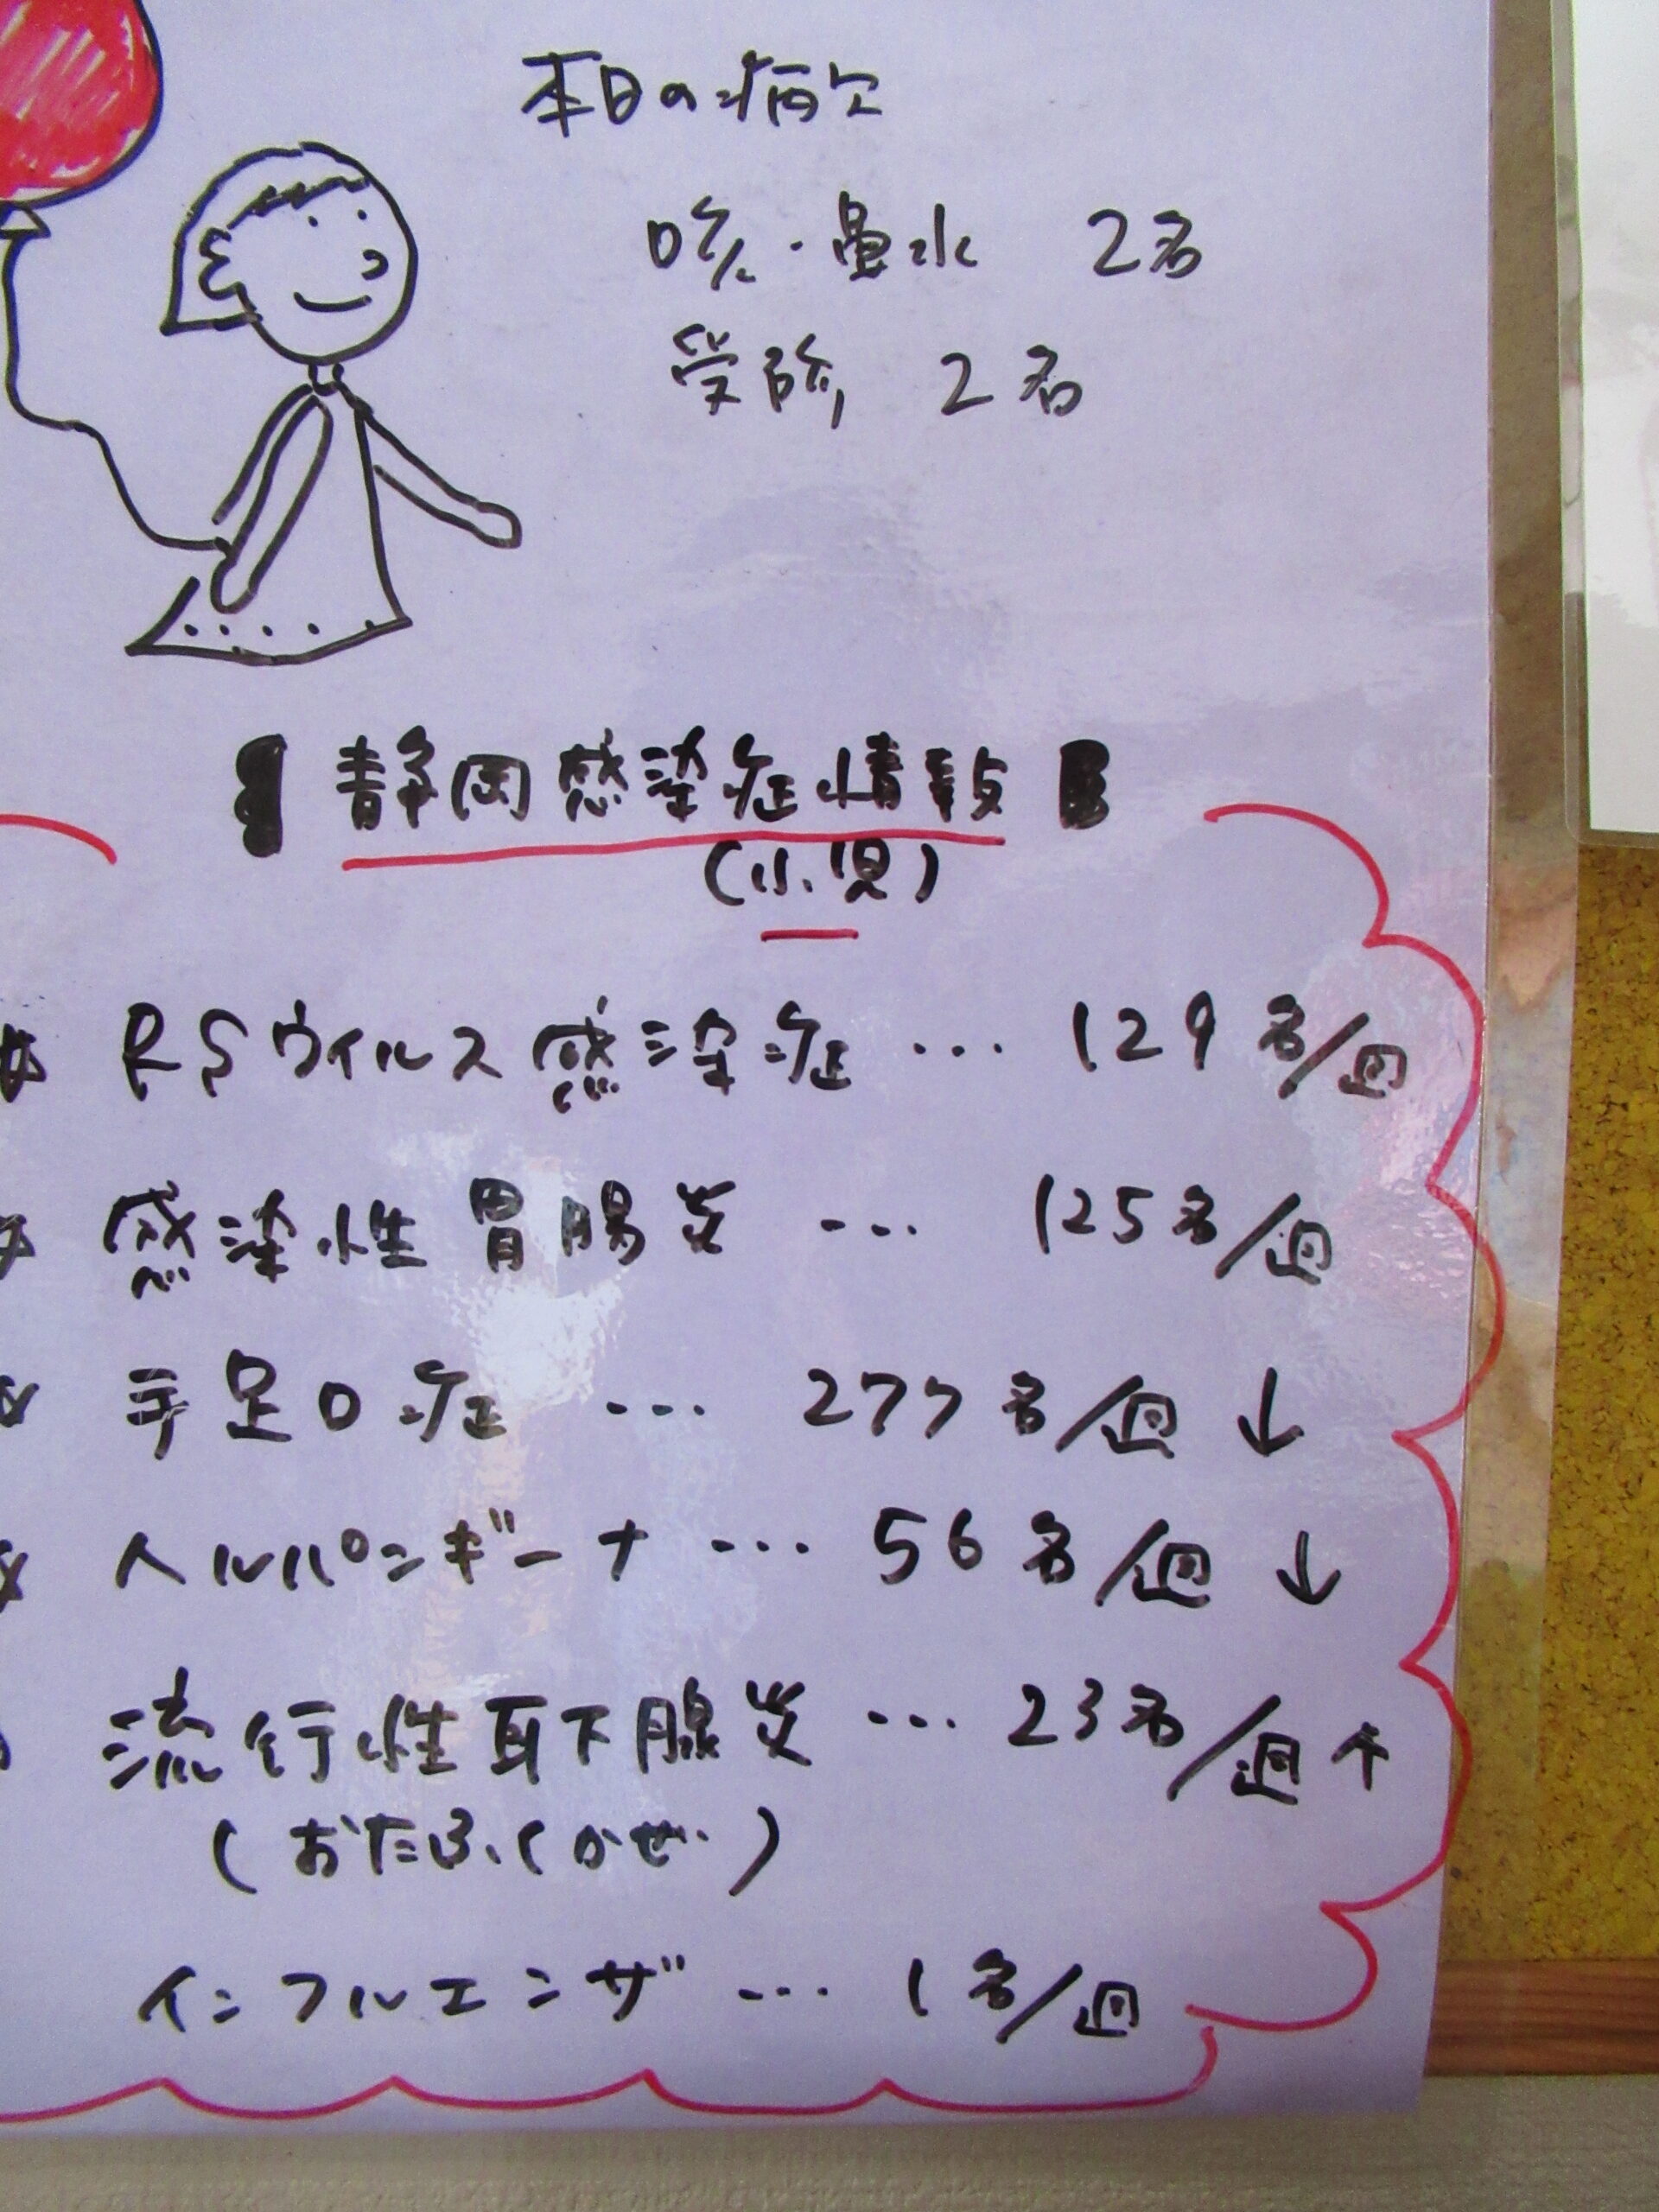 本日の病欠
咳・鼻水 2名
受診 2名
【静岡感染症情報】
(小児)
☆ RSウイルス感染症 … 129名/週
☆ 感染性胃腸炎 … 125名/週
☆ 手足口症 … 277名/週 ↓
☆ ヘルパンギーナ … 56名/週 ↓
流行性耳下腺炎 … 23名/週 ↑
(おたふくかぜ)
インフルエンザ … 1名/週